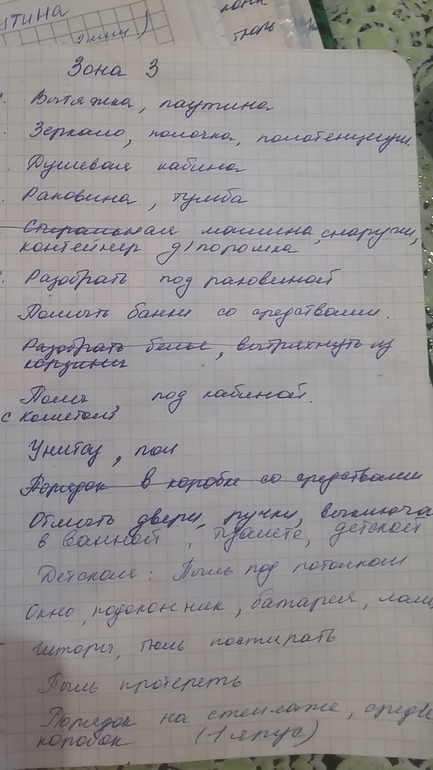 Зона 3
Вытяжка, паутина
Зеркало, полочка, полотенцесуш.
Душевая кабина
Раковина, тумба
Стиральная машина, снаружи,
контейнер д/порошка
Разобрать под раковиной
Помыть банки со средствами.
Разобрать белье, вытряхнуть из
корзины
под кабиной.
Унитаз, пол
Порядок в коробке со средствами
Отмыть двери, ручки, выключа
в ванной, туалете, детской
Детская: Пыль под потолком
Окно, подоконник, батарея,
шторы, тюль постирать
Пыль протереть
Порядок на стеллаже,
коробок (1 ярус)